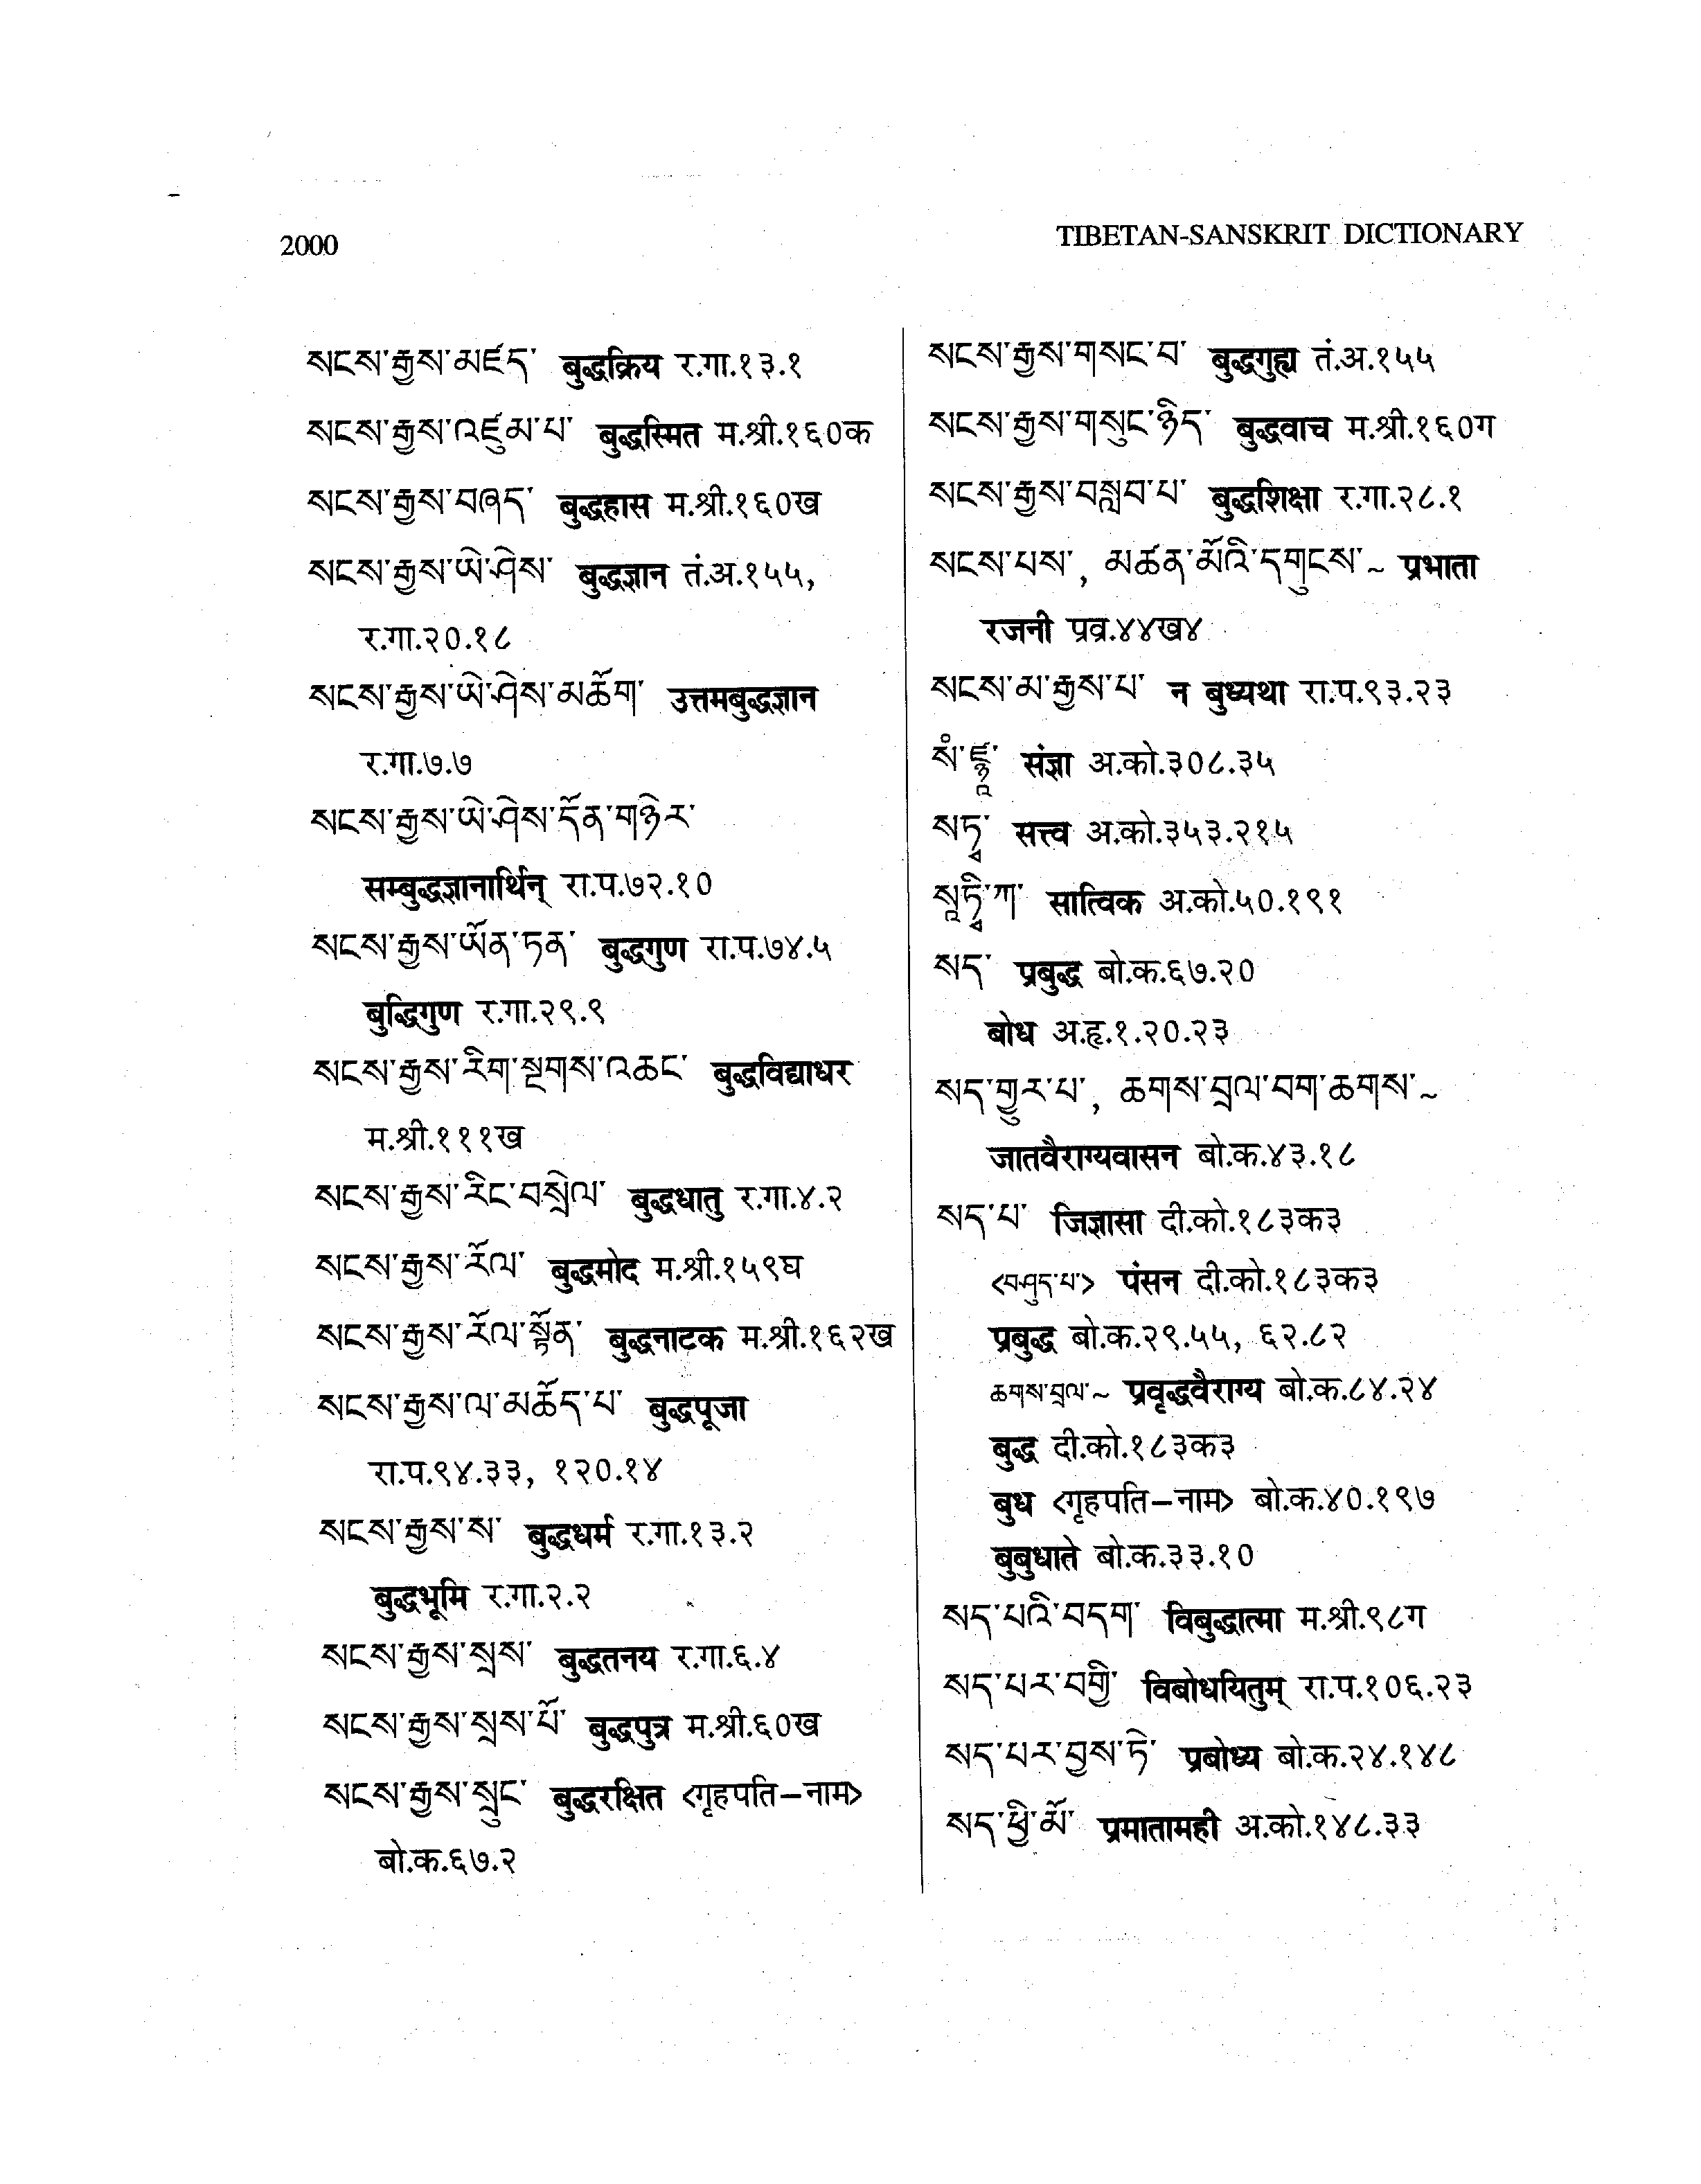 2000
TIBETAN-SANSKRIT DICTIONARY
སངས་རྒྱས་མཛད་ बुद्धक्रिय र.गा.१३.१
སངས་རྒྱས་འཛུམ་པ་ बुद्धस्मित म.श्री.१६०क
སངས་རྒྱས་བཞད་ बुद्धहास म.श्री.१६०ख
སངས་རྒྱས་ཡེ་ཤེས་ बुद्धज्ञान तं.अ.१५५,
र.गा.२०.१८
སངས་རྒྱས་ཡེ་ཤེས་མཆོག་ उत्तमबुद्धज्ञान
र.गा.७.७
སངས་རྒྱས་ཡེ་ཤེས་དོན་གཉེར་
सम्बुद्धज्ञानार्थिन् रा.प.७२.१०
སངས་རྒྱས་ཡོན་ཏན་ बुद्धगुण रा.प.७४.५
बुद्धिगुण र.गा.२९.९
སངས་རྒྱས་རིག་སྔགས་འཆང་ बुद्धविद्याधर
म.श्री.१११ख
སངས་རྒྱས་རིང་བསྲེལ་ बुद्धधातु र.गा.४.२
སངས་རྒྱས་རོལ་ बुद्धमोद म.श्री.१५९घ
སངས་རྒྱས་རོལ་སྟོན་ बुद्धनाटक म.श्री.१६२ख
སངས་རྒྱས་ལ་མཆོད་པ་ बुद्धपूजा
रा.प.९४.३३, १२०.१४
སངས་རྒྱས་ས་ बुद्धधर्म र.गा.१३.२
बुद्धभूमि र.गा.२.२
སངས་རྒྱས་སྲས་ बुद्धतनय र.गा.६.४
སངས་རྒྱས་སྲས་པོ་ बुद्धपुत्र म.श्री.६०ख
སངས་རྒྱས་སྲུང་ बुद्धरक्षित <गृहपति-नाम>
बो.क.६७.२
སངས་རྒྱས་གསང་བ་ बुद्धगुह्य तं.अ.१५५
སངས་རྒྱས་གསུང་ཉིད་ बुद्धवाच म.श्री.१६०ग
སངས་རྒྱས་བསླབ་པ་ बुद्धशिक्षा र.गा.२८.१
སངས་པས་, མཚན་མོའི་དགུངས་~ प्रभाता
रजनी प्रव्र.४४ख४
སངས་མ་རྒྱས་པ་ न बुध्यथा रा.प.९३.२३
སཾ་ཛྙཱ་ संज्ञा अ.को.३०८.३५
སཏྭ་ सत्त्व अ.को.३५३.२१५
སཱཏྭི་ཀ་ सात्विक अ.को.५०.१९१
སད་ प्रबुद्ध बो.क.६७.२०
बोध अ.हृ.१.२०.२३
སད་གྱུར་པ་, ཆགས་བྲལ་བག་ཆགས་~
जातवैराग्यवासन बो.क.४३.१८
སད་པ་ जिज्ञासा दी.को.१८३क३
<བཤུད་པ་> पंसन दी.को.१८३क३
प्रबुद्ध बो.क.२९.५५, ६२.८२
ཆགས་བྲལ་~ प्रवृद्धवैराग्य बो.क.८४.२४
बुद्ध दी.को.१८३क३
बुध <गृहपति-नाम> बो.क.४०.१९७
बुबुधाते बो.क.३३.१०
སད་པའི་བདག་ विबुद्धात्मा म.श्री.९८ग
སད་པར་བགྱི་ विबोधयितुम् रा.प.१०६.२३
སད་པར་བྱས་ཏེ་ प्रबोध्य बो.क.२४.१४८
སད་ཕྱི་མོ་ प्रमातामही अ.को.१४८.३३